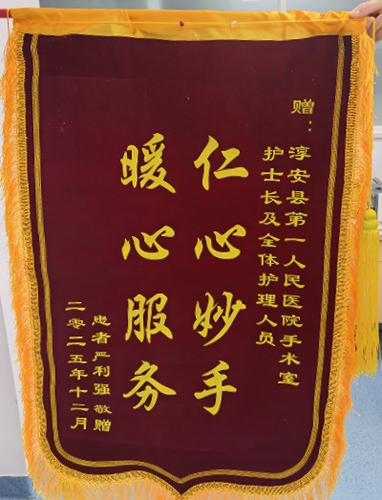 赠：淳安县第一人民医院手术室
护士长及全体护理人员
仁心妙手
暖心服务
患者严利强敬赠
二零二五年十二月